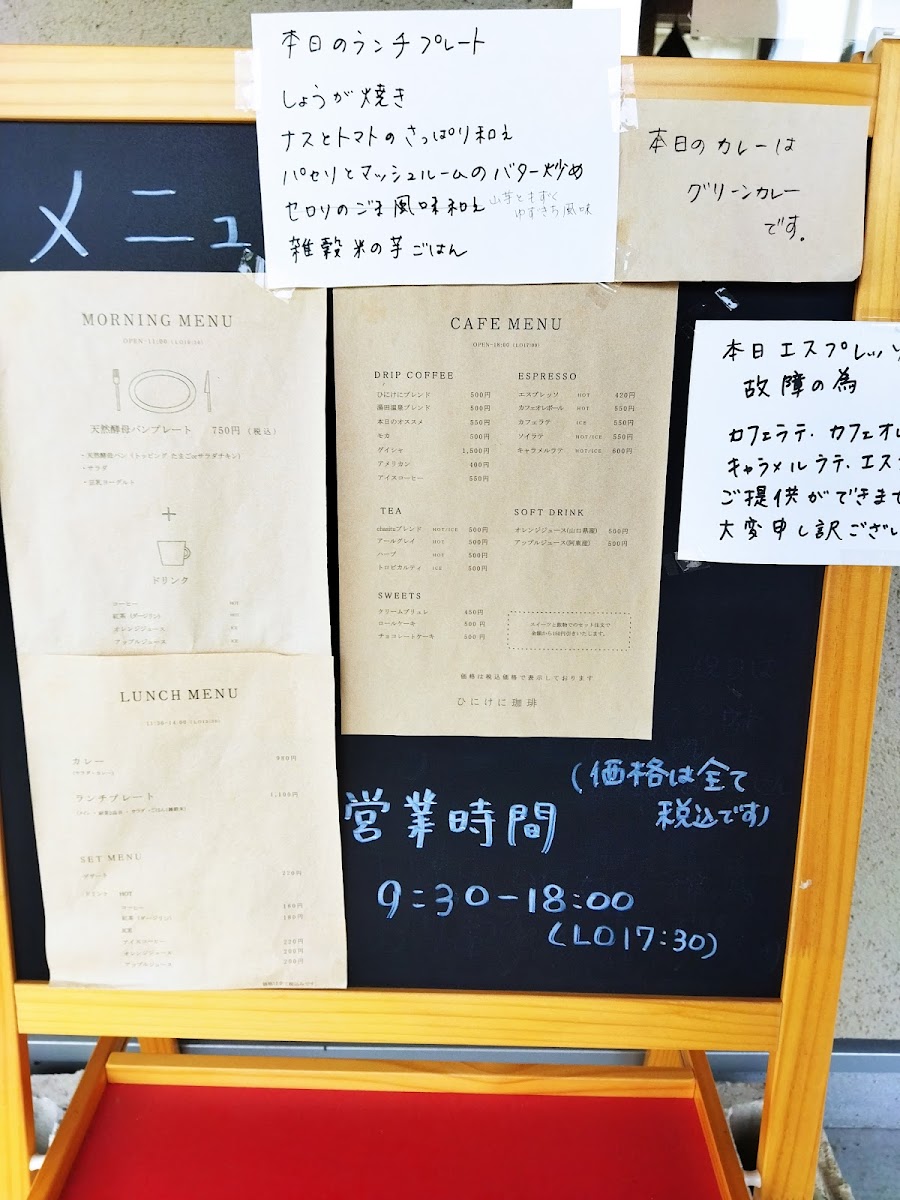 本日のランチプレート
しょうが焼き
ナスとトマトのさっぱり和え
パセリとマッシュルームのバター炒め
セロリのごま風味和え
山芋ともずく
ゆずきち風味
雑穀米の芋ごはん
本日のカレーは
グリーンカレー
です。
メニュ
本日エスプレッソ
故障の為
カフェラテ・カフェオレ
キャラメルラテ・エス
ご提供ができませ
大変申し訳ござい
MORNING MENU
OPEN-11:00 (LO10:30)
天然酵母パンプレート 750円 (税込)
・天然酵母パン (トッピング たまごorサラダチキン)
・サラダ
・豆乳ヨーグルト
+
ドリンク
コーヒー HOT
紅茶 (ダージリン) HOT
オレンジジュース ICE
アップルジュース ICE
LUNCH MENU
カレー 980円
ランチプレート 1,100円
SET MENU
デザート
コーヒー
紅茶 (ダージリン)
アイスコーヒー 220円
オレンジジュース 200円
アップルジュース 200円
CAFE MENU
OPEN-18:00 (LO17:00)
DRIP COFFEE
ひにけにブレンド 500円
湯田温泉ブレンド 500円
本日のオススメ 550円
モカ 500円
ゲイシャ 1,500円
アメリカン 400円
アイスコーヒー 550円
ESPRESSO
エスプレッソ HOT 420円
カフェオレボール HOT 550円
カフェラテ ICE 550円
ソイラテ HOT/ICE 550円
キャラメルラテ HOT/ICE 600円
TEA
chasitsuブレンド HOT/ICE 500円
アールグレイ HOT 500円
ハーブ HOT 500円
トロピカルティ ICE 500円
SOFT DRINK
オレンジジュース(山口県産) 500円
アップルジュース(阿東産) 500円
SWEETS
クリームブリュレ 450円
ロールケーキ 500円
チョコレートケーキ 500円
スイーツと飲物でのセット注文で
金額から100円引きいたします。
価格は税込価格で表示しております
ひにけに珈琲
(価格は全て
税込です)
営業時間
9:30-18:00
(LO17:30)